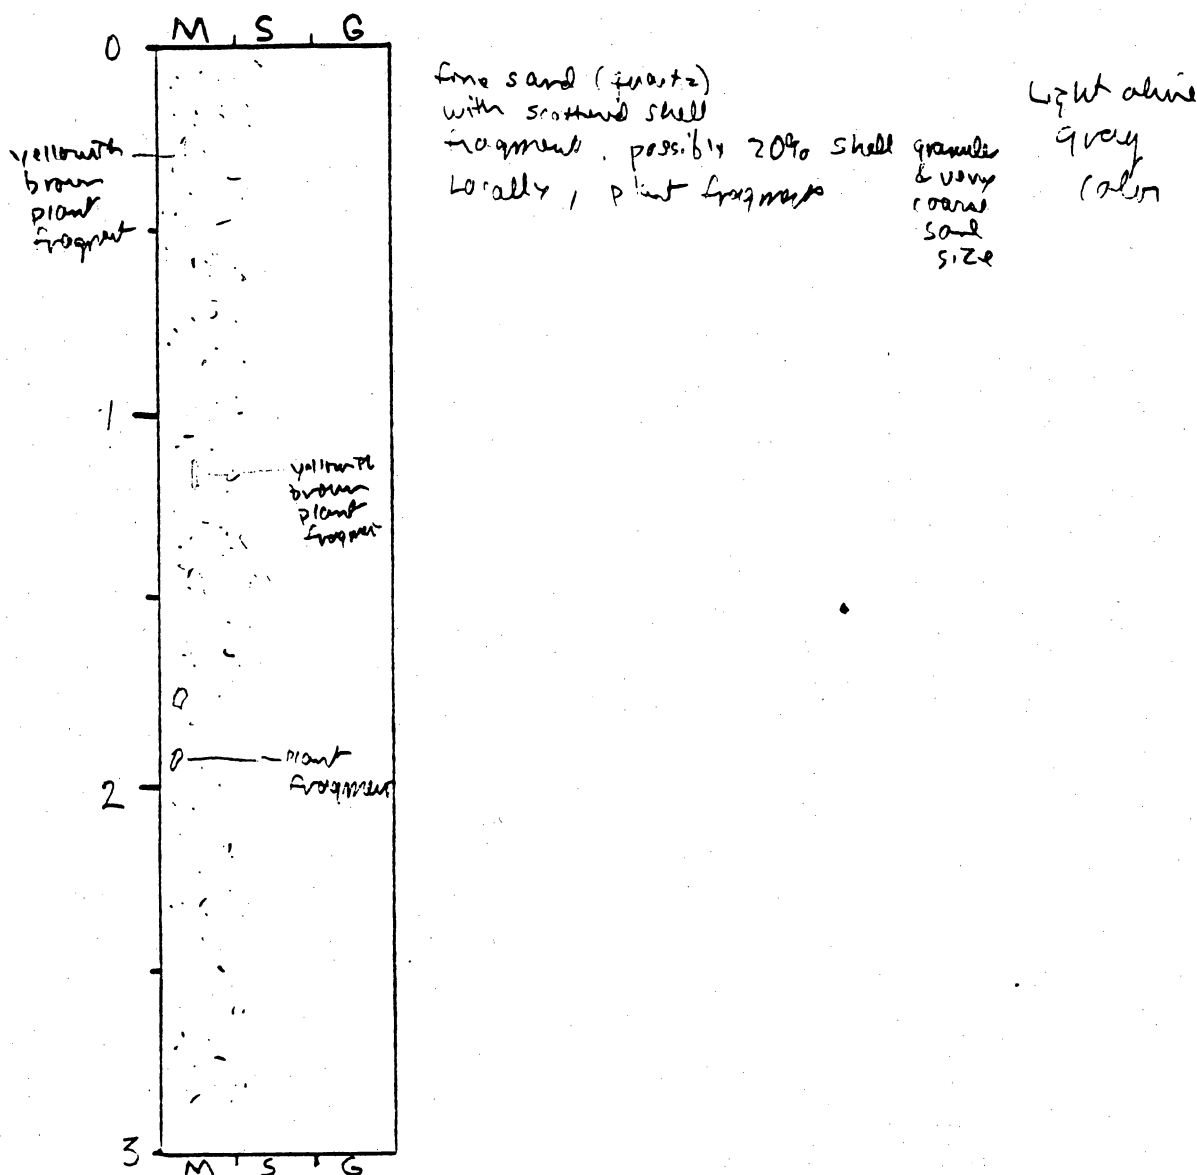 M S G
0
fine sand (quartz)
with scattered shell
fragments, possibly 20% shell granules
& very
coarse
sand
size
Locally, plant fragments
Light olive
gray
color
yellowish
brown
plant
fragment
1
yellowish
brown
plant
fragment
plant
fragment
2
3
M S G